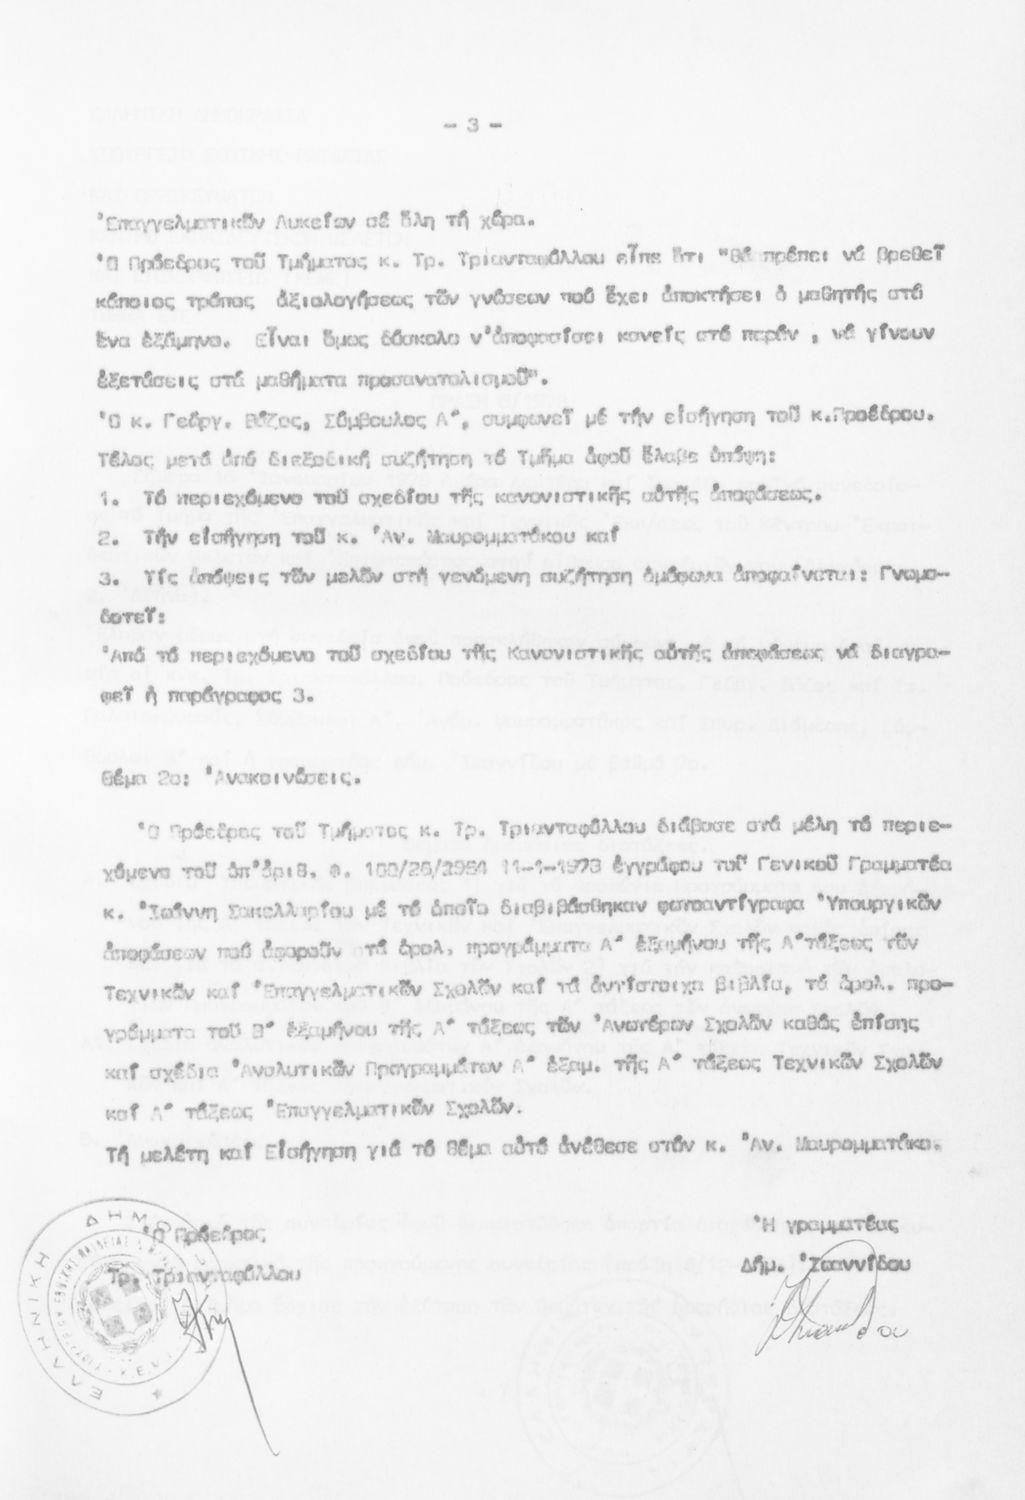 - 3 -
Ἐπαγγελματικῶν Λυκείων σέ ὅλη τή χώρα.
Ὁ Πρόεδρος τοῦ Τμήματος κ. Τρ. Τριανταφύλλου εἶπε ὅτι "θά πρέπει νά βρεθεῖ
κάποιος τρόπος ἀξιολογήσεως τῶν γνώσεων πού ἔχει ἀποκτήσει ὁ μαθητής στό
ἕνα ἑξάμηνο. Εἶναι ὅμως δύσκολο ν'ἀποφασίσει κανείς στό παρόν , νά γίνουν
ἐξετάσεις στά μαθήματα προσανατολισμοῦ".
Ὁ κ. Γεώργ. Βόζος, Σύμβουλος Α΄, συμφωνεῖ μέ τήν εἰσήγηση τοῦ κ.Προέδρου.
Τέλος μετά ἀπό διεξοδική συζήτηση τό Τμῆμα ἀφοῦ ἔλαβε ὑπόψη:
1. Τό περιεχόμενο τοῦ σχεδίου τῆς κανονιστικῆς αὐτῆς ἀποφάσεως.
2. Τήν εἰσήγηση τοῦ κ. Ἀν. Μαυρομματάκου καί
3. Τίς ἀπόψεις τῶν μελῶν στή γενόμενη συζήτηση ὁμόφωνα ἀποφαίνεται: Γνωμο-
δοτεῖ:
Ἀπό τό περιεχόμενο τοῦ σχεδίου τῆς Κανονιστικῆς αὐτῆς ἀποφάσεως νά διαγρα-
φεῖ ἡ παράγραφος 3.
Θέμα 2ο: Ἀνακοινώσεις.
Ὁ Πρόεδρος τοῦ Τμήματος κ. Τρ. Τριανταφύλλου διάβασε στά μέλη τό περιε-
χόμενο τοῦ ὑπ'ἀριθ. Φ. 11-1-1978 ἐγγράφου τοῦ Γενικοῦ Γραμματέα
κ. Ἰωάννη Σακελλαρίου μέ τό ὁποῖο διαβιβάσθηκαν φωτοαντίγραφα Ὑπουργικῶν
ἀποφάσεων πού ἀφοροῦν στά ὡρολ. προγράμματα Α΄ ἑξαμήνου τῆς Α΄τάξεως τῶν
Τεχνικῶν καί Ἐπαγγελματικῶν Σχολῶν καί τά ἀντίστοιχα βιβλία, τά ὡρολ. προ-
γράμματα τοῦ Β΄ ἑξαμήνου τῆς Α΄ τάξεως τῶν Ἀνωτέρων Σχολῶν καθώς ἐπίσης
καί σχέδια Ἀναλυτικῶν Προγραμμάτων Α΄ ἑξαμ. τῆς Α΄ τάξεως Τεχνικῶν Σχολῶν
καί Α΄ τάξεως Ἐπαγγελματικῶν Σχολῶν.
Τή μελέτη καί Εἰσήγηση γιά τό θέμα αὐτό ἀνέθεσε στόν κ. Ἀν. Μαυρομματάκο.
Ὁ Πρόεδρος
Τρ. Τριανταφύλλου
Ἡ γραμματέας
Δήμ. Ἰωαννίδου
ΕΛΛΗΝΙΚΗ ΔΗΜΟ